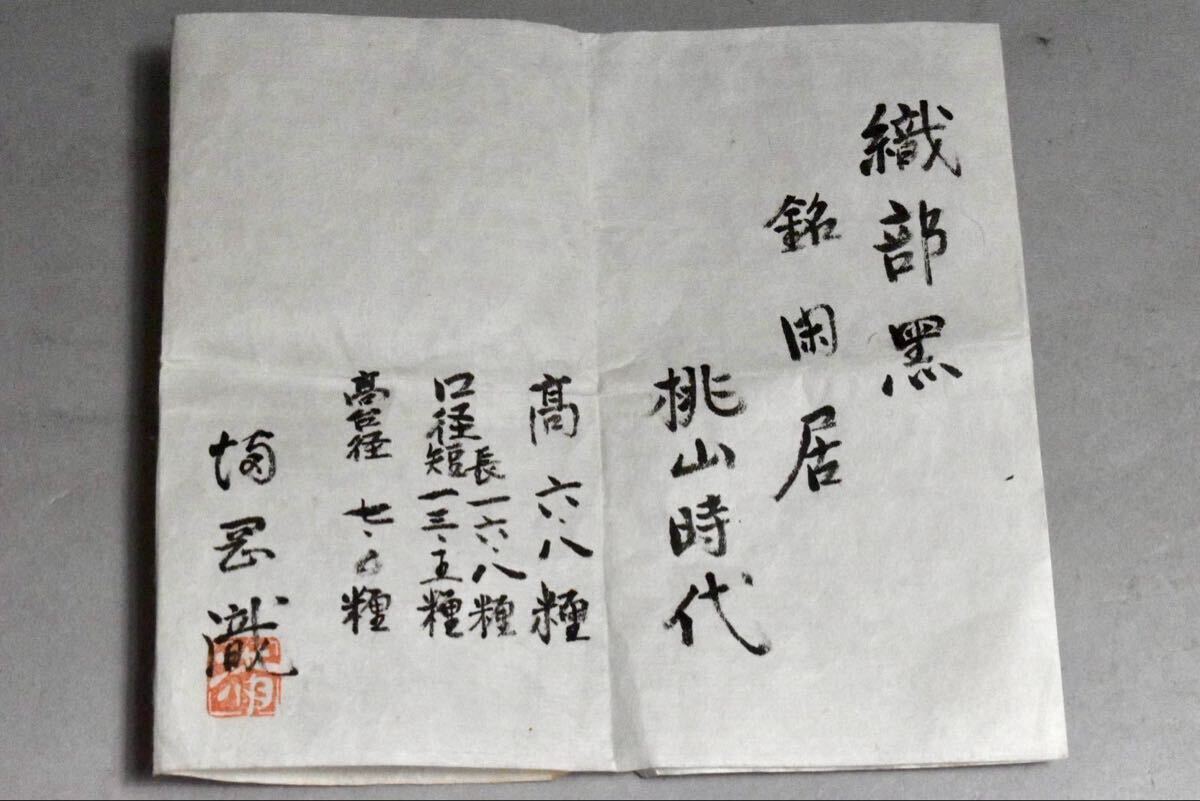 織部黒
銘 閑居
桃山時代
高 六・八糎
口径 長 一六・八糎
短 一三・五糎
高台径 七・糎
岡